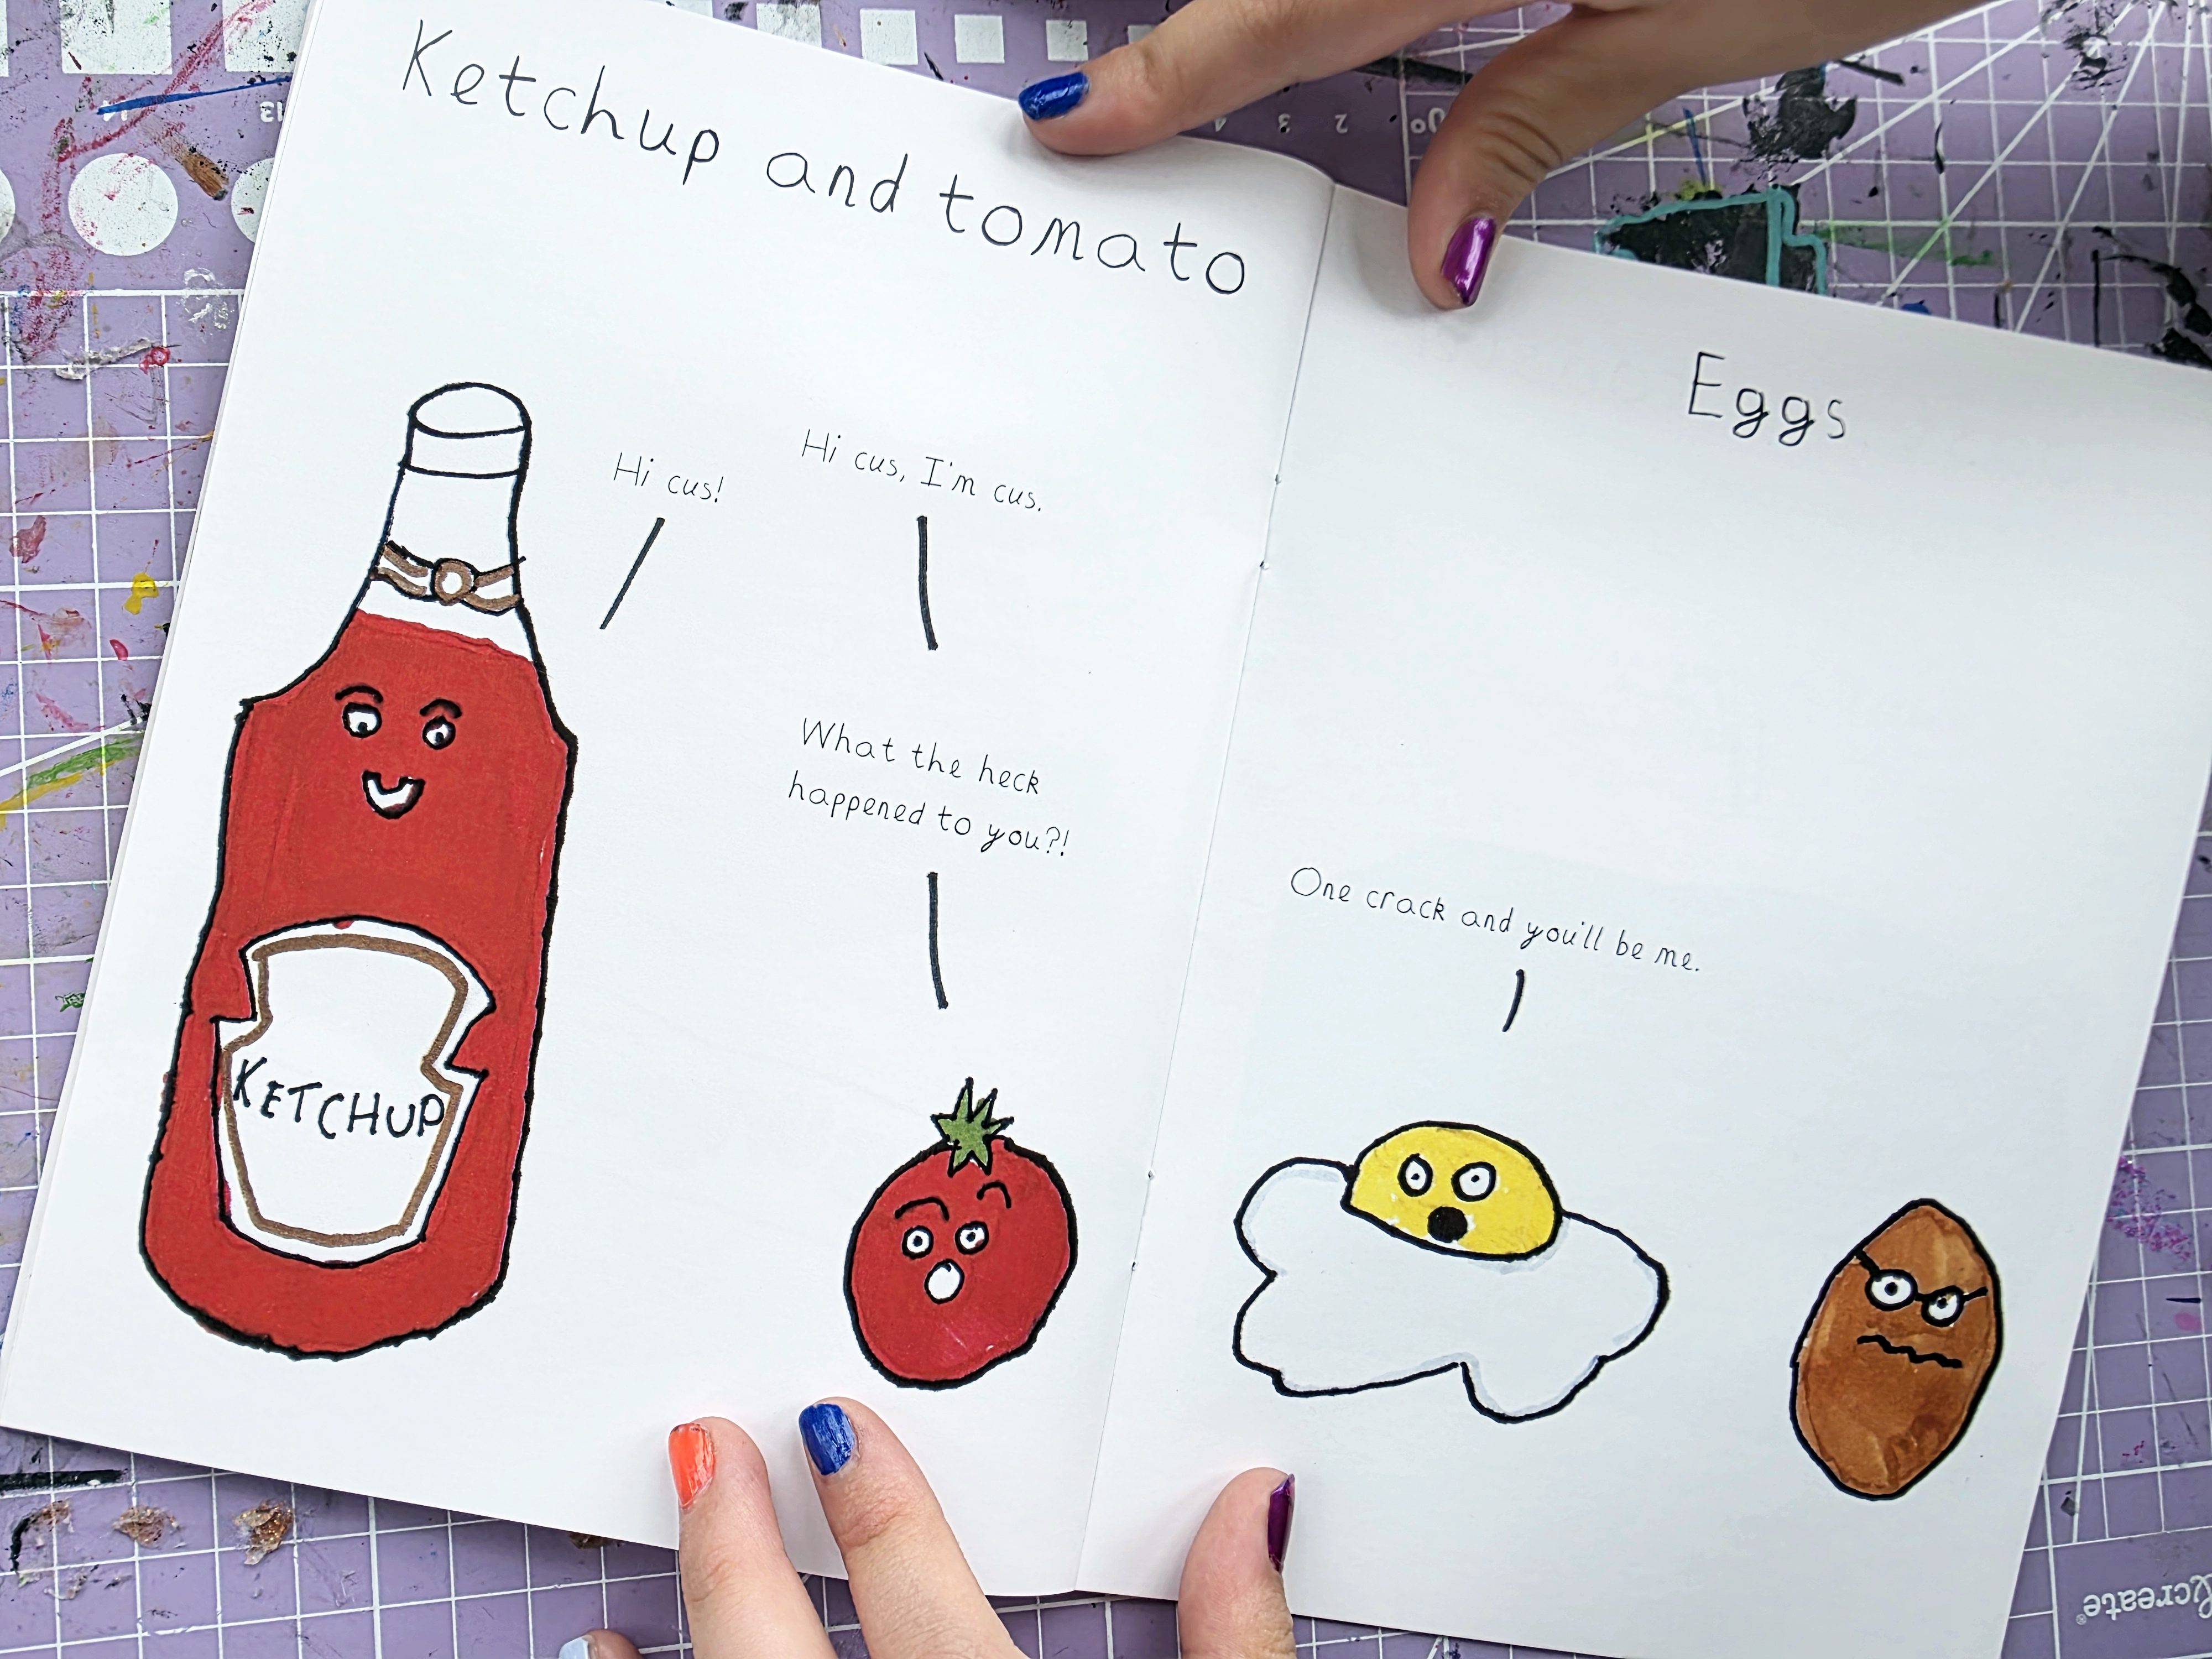 Ketchup and tomato
Hi cus!
Hi cus, I'm cus.
What the heck
happened to you?!
KETCHUP
Eggs
One crack and you'll be me.
13
14
4
3
2
0°
create